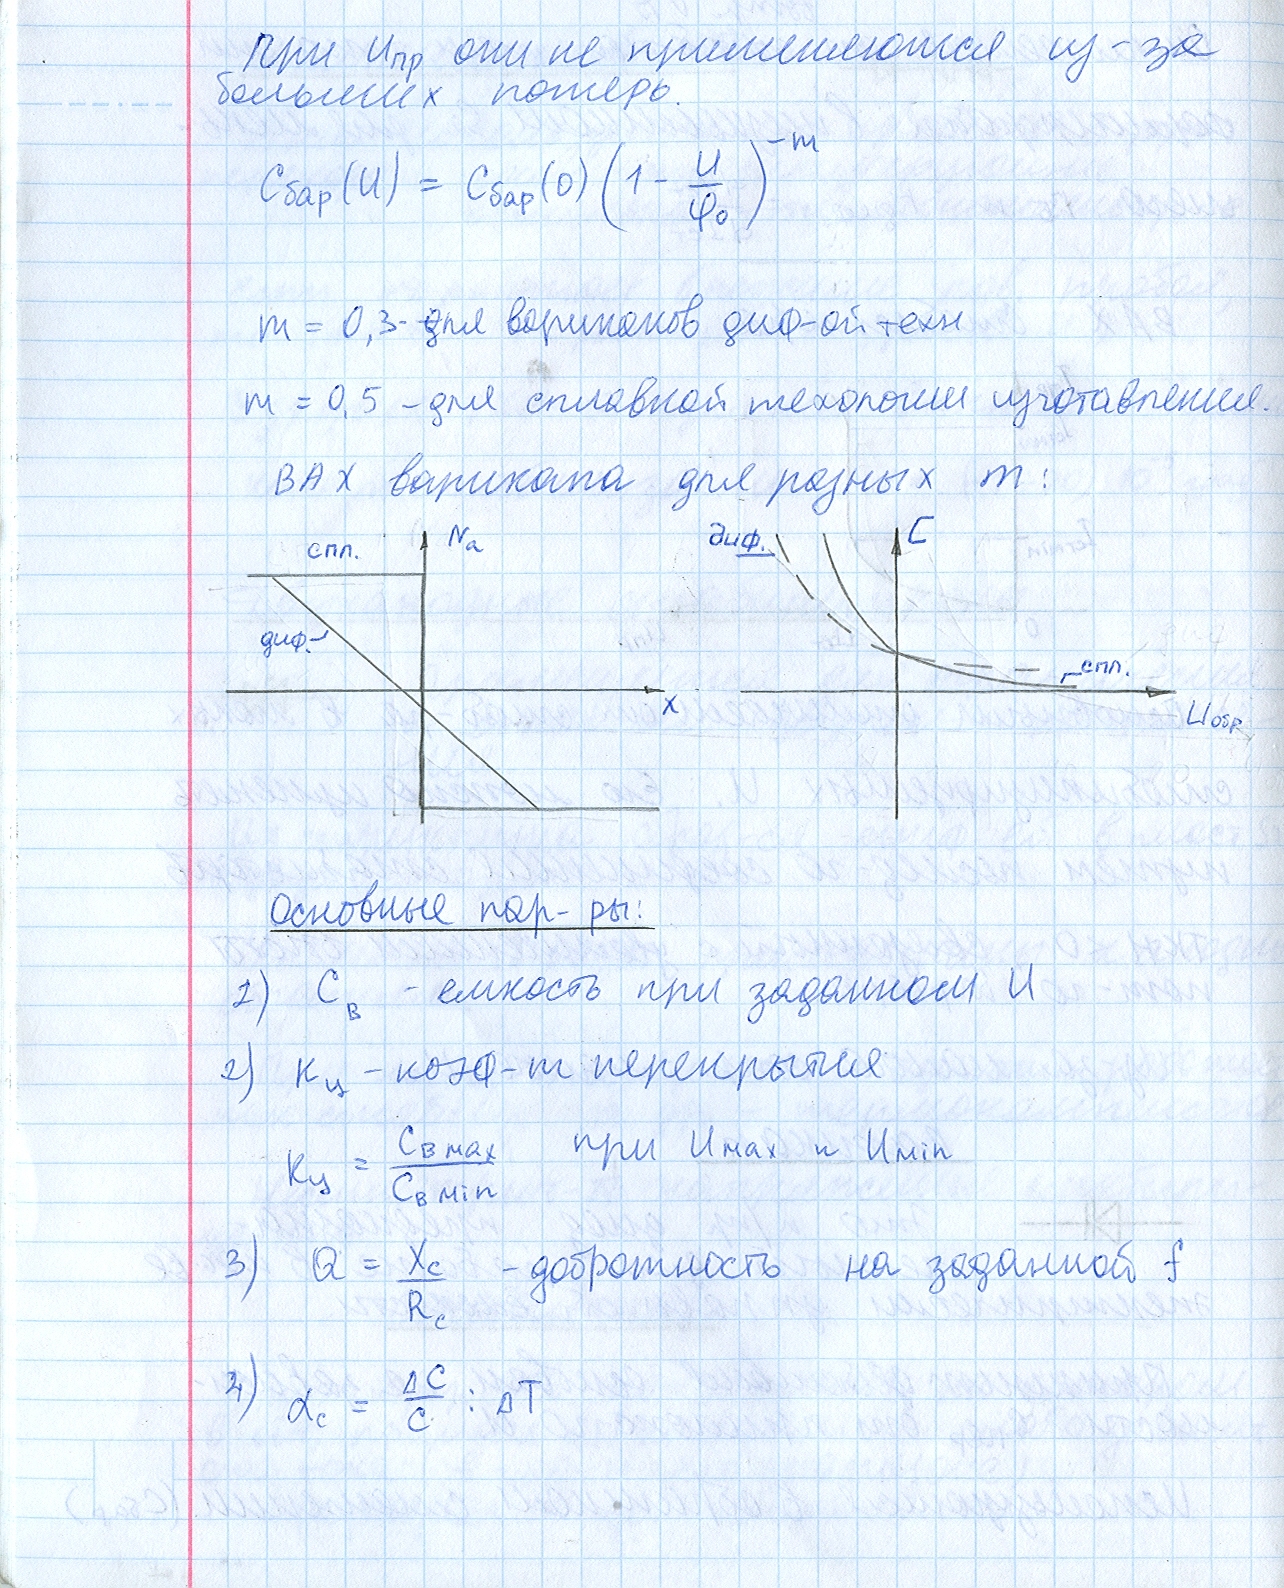 При Uпр они не применяются из-за
больших потерь.
Cбар(U) = Cбар(0) (1 - U/φ₀)^-m
m = 0,3 - для варикапов диф-ой техн
m = 0,5 - для сплавной техологии изготавления.
ВАХ варикапа для разных m:
спл.
Nа
диф.
x
диф.
C
спл.
Uобр
Основные пар-ры:
1) Cв - емкость при заданном U
2) Кц - коэф-т перекрытия
Кц = Cв мах / Cв міn при Uмах и Uміn
3) Q = Xc / Rc - добротность на заданной f
4) αc = ΔC / C : ΔT